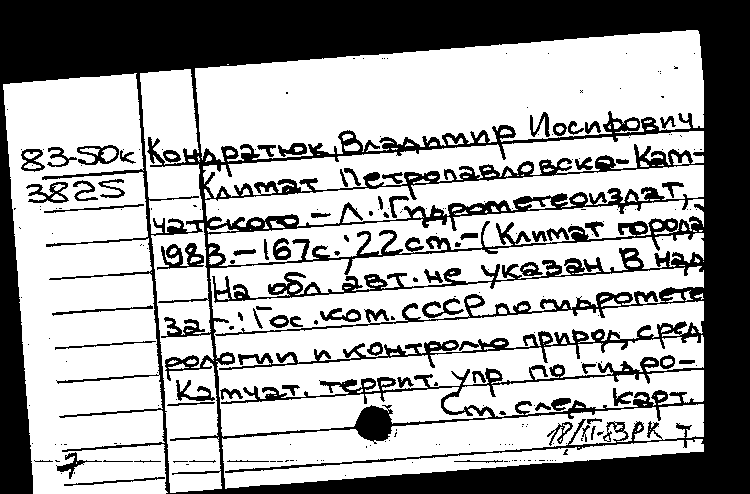 83-50к
3825
Кондратюк, Владимир Иосифович.
Климат Петропавловска-Кам-
чатского.- Л.: Гидрометеоиздат,
1983.-167с.; 22 см.-(Климат города)
На обл. авт. не указан. В над
заг.: Гос. ком. СССР по гидромете
рологии и контролю природ. сред
Камчат. террит. упр. по гидро-
См. след. карт.
18/XI-83 РК Т.
7